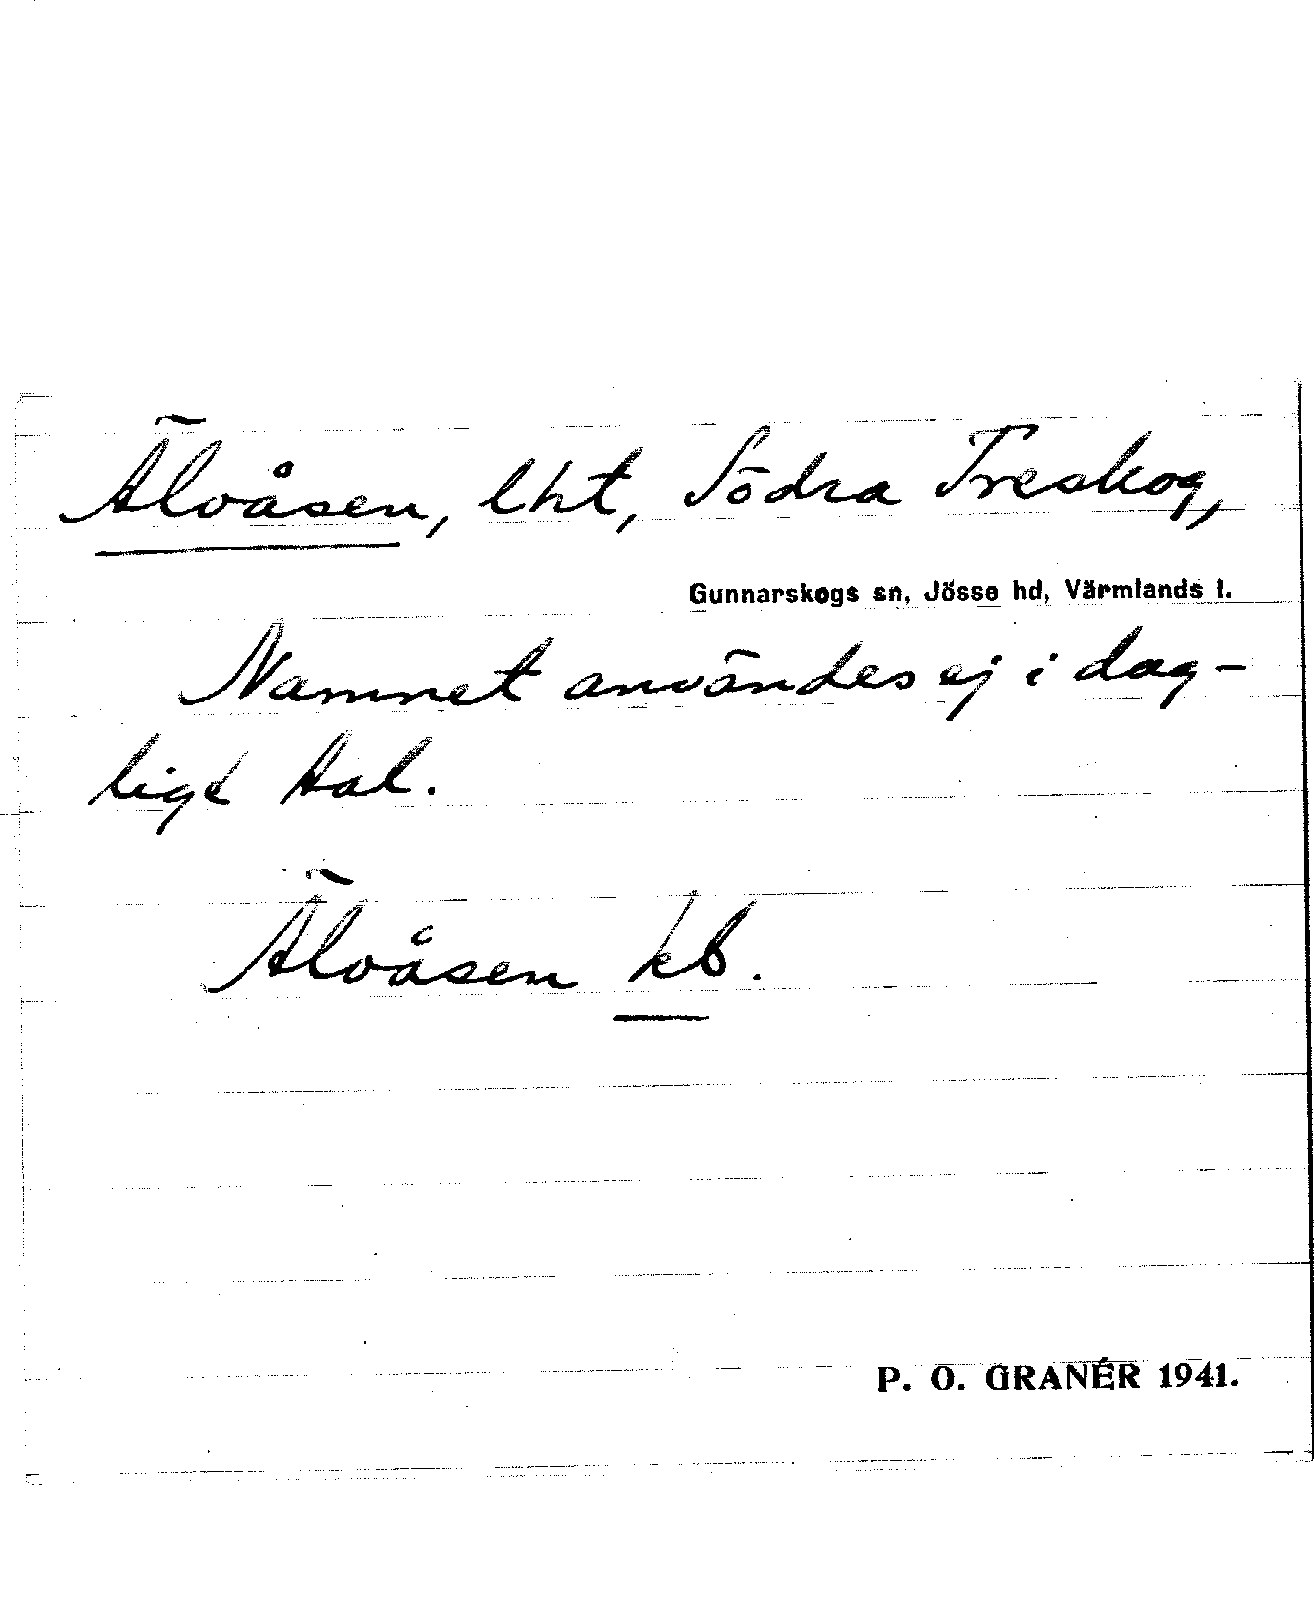 Älvåsen, lht, Södra Treskog,
Gunnarskogs sn, Jösse hd, Värmlands l.
Namnet användes ej i dag-
ligt tal.
Älvåsen kb.
P. O. GRANÉR 1941.